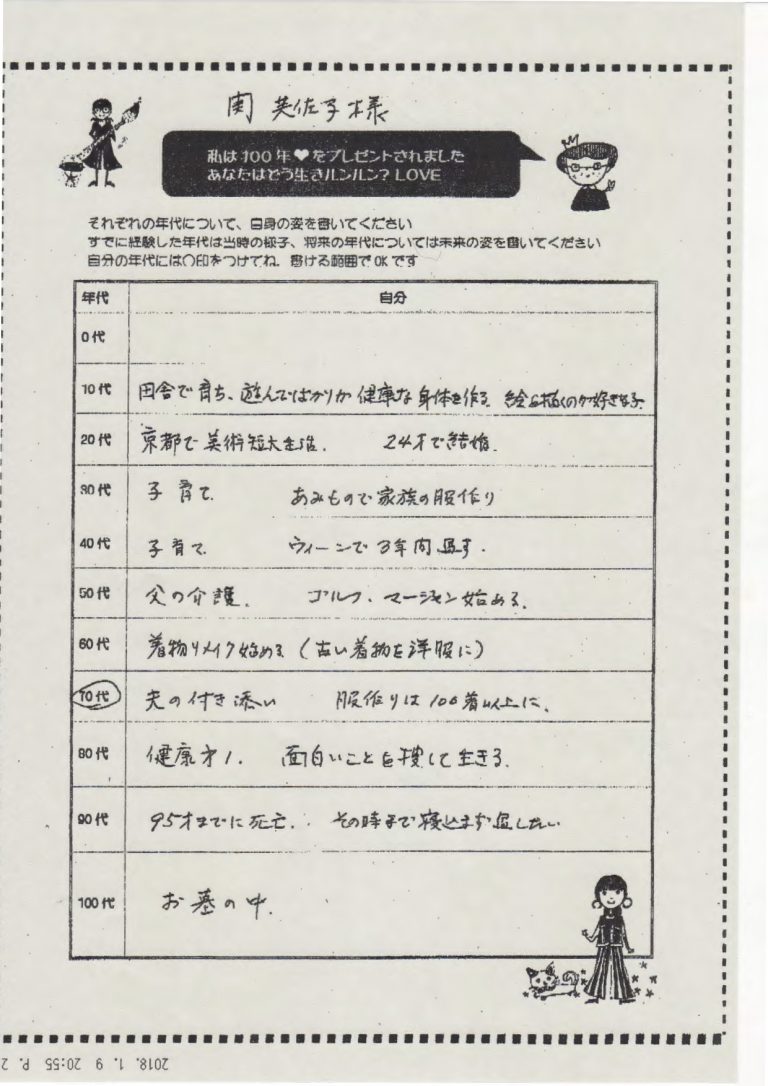 関 英佐子 様
私は100年♥をプレゼントされました
あなたはどう生きルンルン? LOVE
それぞれの年代について、自身の姿を書いてください
すでに経験した年代は当時の様子、将来の年代については未来の姿を書いてください
自分の年代には〇印をつけてね。書ける範囲でOKです
年代 自分
0代
10代 田舎で育ち、遊んでばかりか健康な身体を作る 絵を描くのが好きな子
20代 京都で美術短大生活. 24才で結婚.
30代 子育て. あみもので家族の服作り
40代 子育て. ウィーンで3年間過す.
50代 父の介護. ゴルフ、マージャン始める.
60代 着物リメイク始める (古い着物を洋服に)
70代 夫の付き添い 服作りは100着以上に.
80代 健康才1. 面白いことを捜して生きる.
90代 95才までに死亡. その時まで寝込まず過したい
100代 お墓の中.
2018. 1. 9 20:55 P. 2